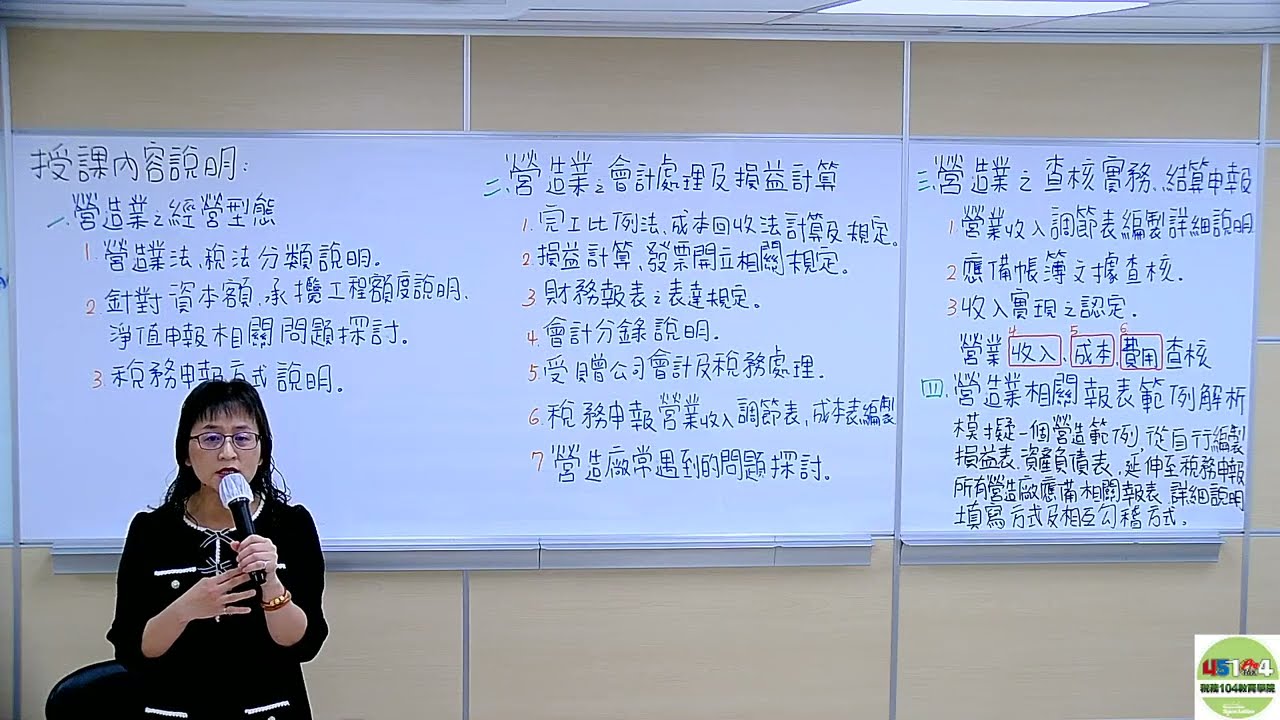 授課內容說明:
一、營造業之經營型態
1. 營造業法、稅法分類說明。
2. 針對資本額、承攬工程額度說明、
淨值申報相關問題探討。
3 稅務申報方式說明。
二、營造業之會計處理及損益計算
1. 完工比例法、成本回收法計算及規定。
2. 損益計算、發票開立相關規定。
3 財務報表之表達規定。
4. 會計分錄說明。
5. 受贈公司會計及稅務處理。
6. 稅務申報營業收入調節表,成本表編製
7 營造廠常遇到的問題探討。
三、營造業之查核實務、結算申報
1. 營業收入調節表編製詳細說明
2 應備帳簿文據查核。
3 收入實現之認定。
4 5 6
營業收入、成本、費用查核
四、營造業相關報表範例解析
模擬一個營造範例,從自行編製
損益表、資產負債表,延伸至稅務申報
所有營造廠應備相關報表、詳細說明
填寫方式及相互勾稽方式。
45104
稅務104教育學院